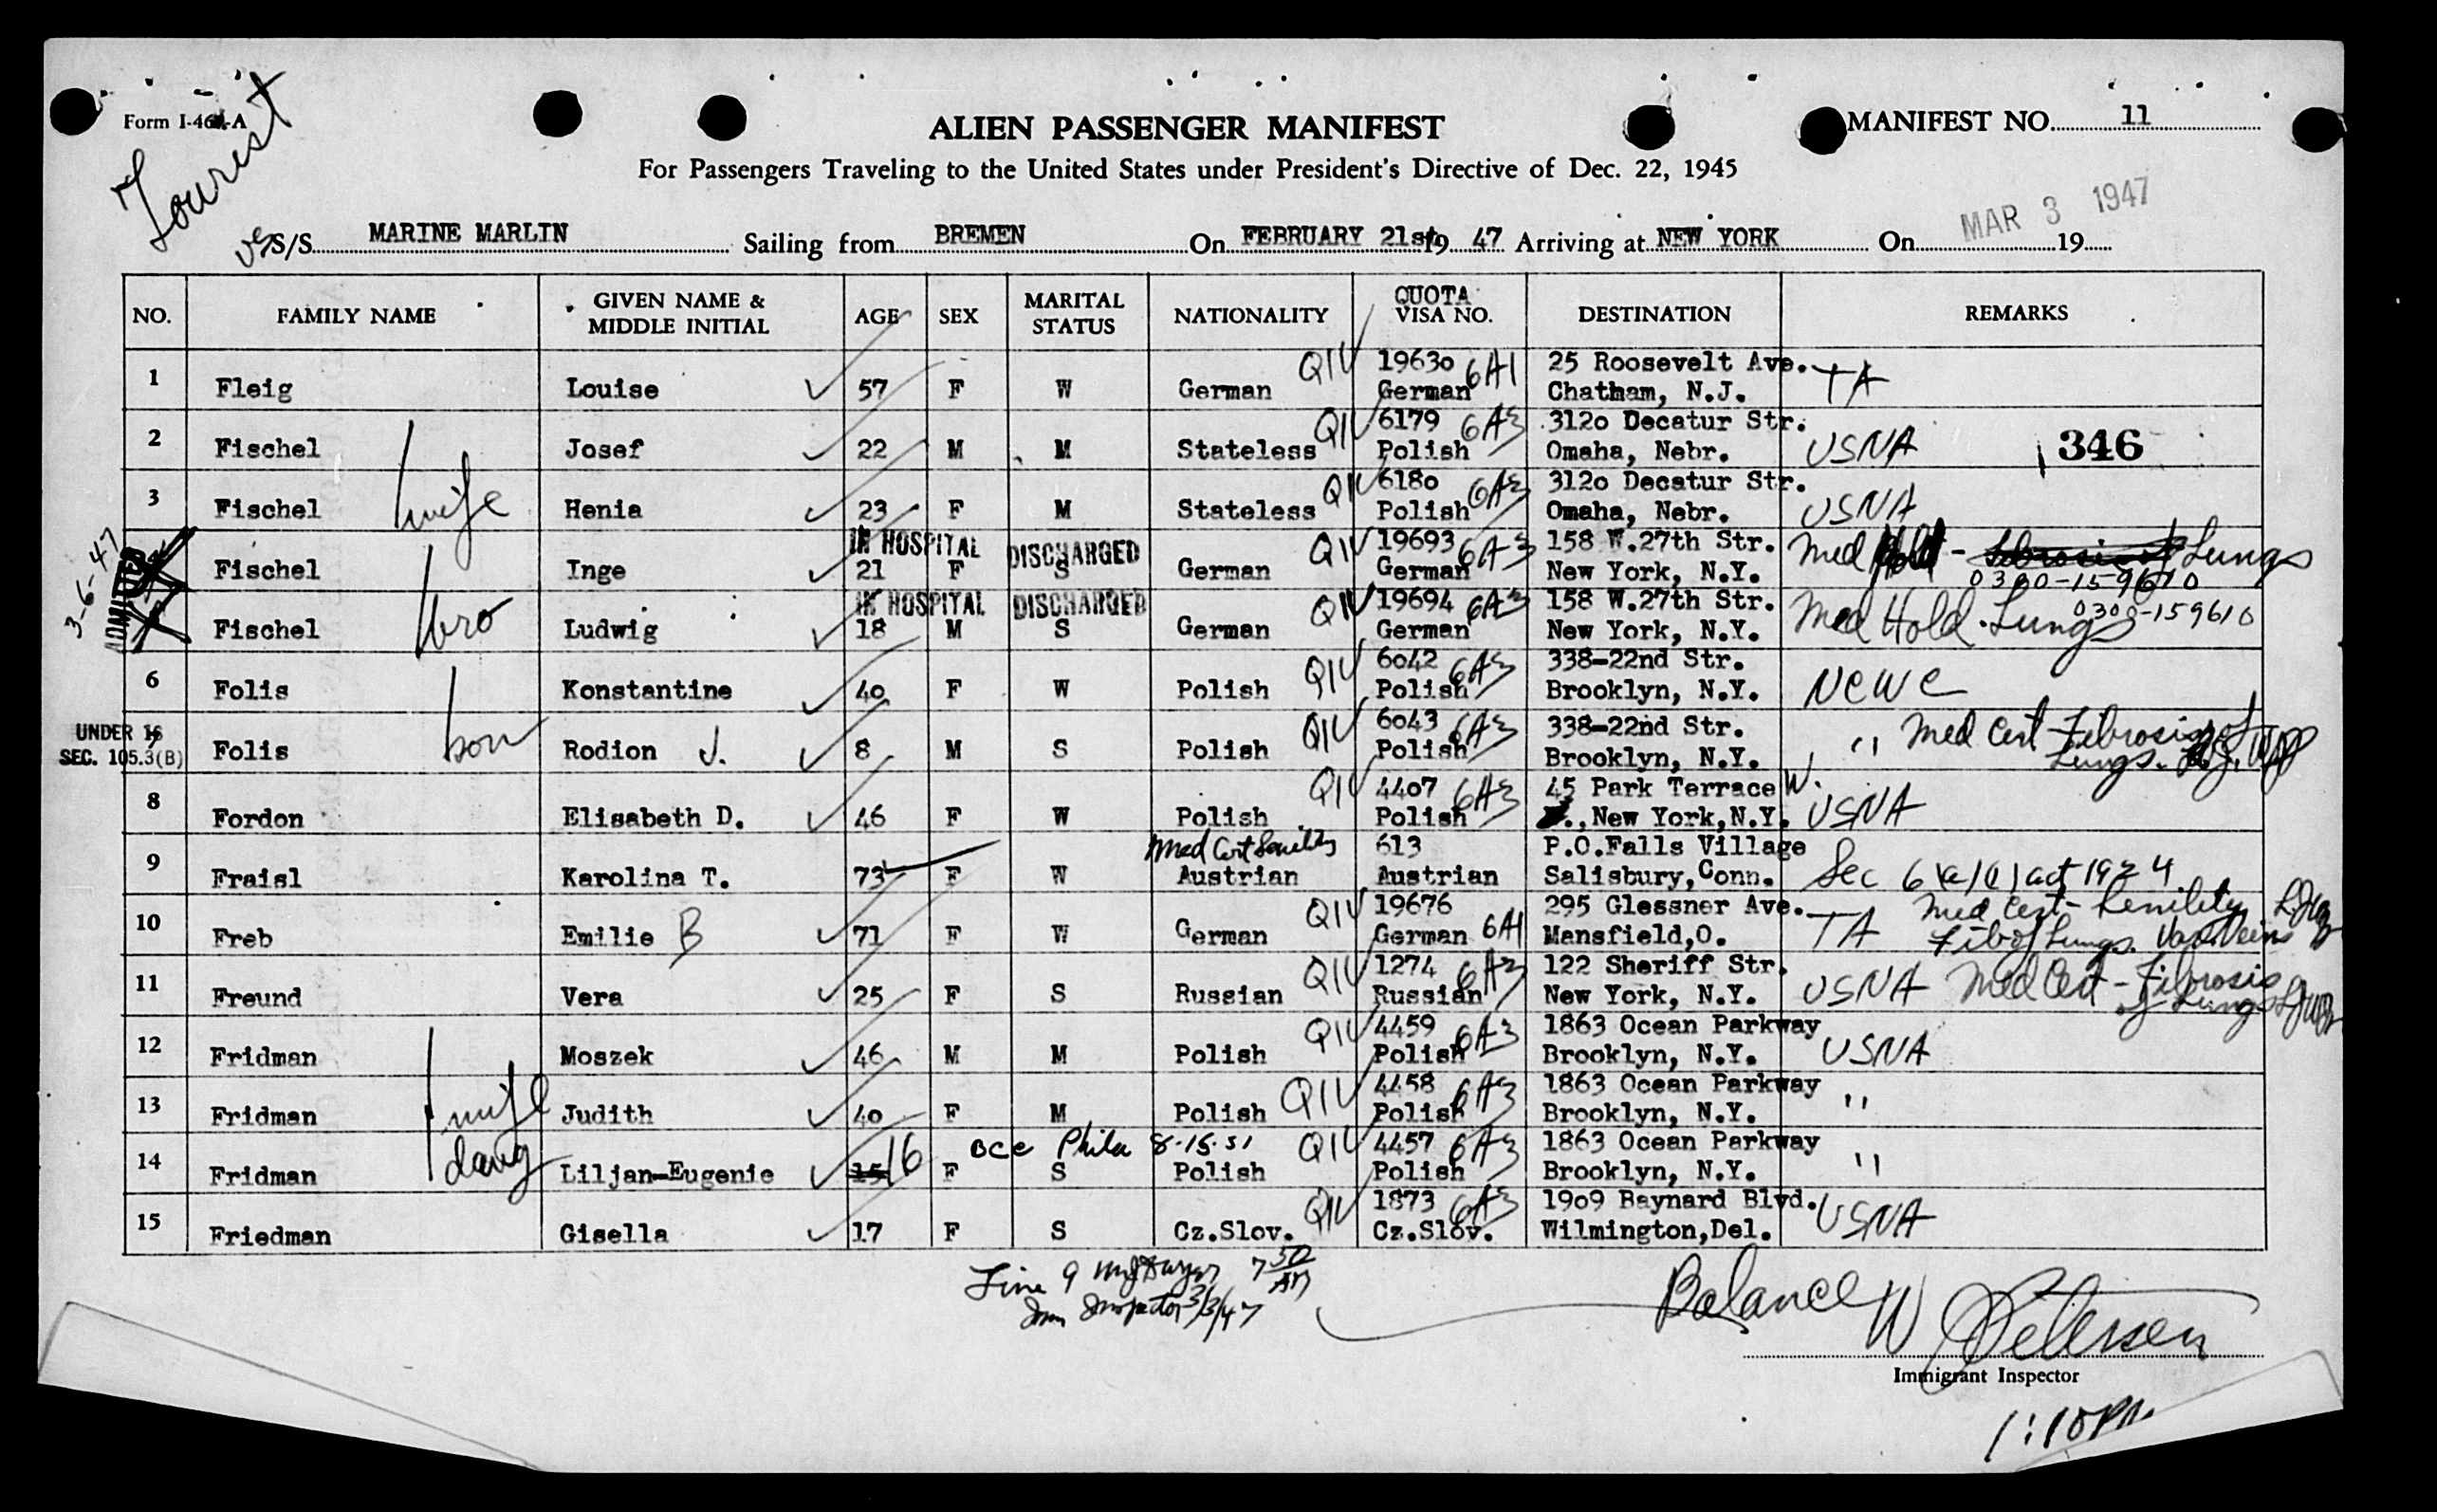 Form I-46 -A
Tourist
ALIEN PASSENGER MANIFEST
MANIFEST NO. 11
For Passengers Traveling to the United States under President's Directive of Dec. 22, 1945
MAR 3 1947
S/S MARINE MARLIN Sailing from BREMEN On FEBRUARY 21st 19 47 Arriving at NEW YORK On 19
NO. FAMILY NAME GIVEN NAME & MIDDLE INITIAL AGE SEX MARITAL STATUS NATIONALITY QUOTA VISA NO. DESTINATION REMARKS
QIV 19630 6A1 25 Roosevelt Ave.
1 Fleig Louise 57 F W German German Chatham, N.J. TA
QIV 6179 6A3 3120 Decatur Str.
2 Fischel Josef 22 M M Stateless Polish Omaha, Nebr. USNA 346
QIV 6180 6A3 3120 Decatur Str.
3 Fischel wife Henia 23 F M Stateless Polish Omaha, Nebr. USNA
3-6-47 ADMITTED
IN HOSPITAL DISCHARGED QIV 19693 6A3 158 W.27th Str. Med Hold - Lungs
Fischel Inge 21 F S German German New York, N.Y. 0300-159610
IN HOSPITAL DISCHARGED QIV 19694 6A3 158 W.27th Str. 0300-159610
Fischel bro Ludwig 18 M S German German New York, N.Y. Med Hold. Lungs
QIV 6042 6A3 338-22nd Str.
6 Folis Konstantine 40 F W Polish Polish Brooklyn, N.Y. NCWC
UNDER 16 SEC. 105.3(B)
QIV 6043 6A3 338-22nd Str.
7 Folis son Rodion J. 8 M S Polish Polish Brooklyn, N.Y. " Med Cert Fibrosis of Lungs.
QIV 4407 6A3 45 Park Terrace W.
8 Fordon Elisabeth D. 46 F W Polish Polish , New York,N.Y. USNA
Med Cert Senility 613 P.O.Falls Village
9 Fraisl Karolina T. 73 F W Austrian Austrian Salisbury,Conn. Sec 6 (a)(1) act 1924
QIV 19676 295 Glessner Ave. Med Cert - Senility
10 Freb Emilie B 71 F W German German 6A1 Mansfield,O. TA Fib of Lungs. Var. Veins
QIV 1274 6A3 122 Sheriff Str.
11 Freund Vera 25 F S Russian Russian New York, N.Y. USNA Med Cert - Fibrosis of Lungs
QIV 4459 6A3 1863 Ocean Parkway
12 Fridman Moszek 46 M M Polish Polish Brooklyn, N.Y. USNA
QIV 4458 6A3 1863 Ocean Parkway
13 Fridman wife Judith 40 F M Polish Polish Brooklyn, N.Y. "
Occ Phila 8-15-51 QIV 4457 6A3 1863 Ocean Parkway
14 Fridman daug Liljan-Eugenie 15 16 F S Polish Polish Brooklyn, N.Y. "
QIV 1873 6A3 1909 Baynard Blvd.
15 Friedman Gisella 17 F S Cz.Slov. Cz.Slov. Wilmington,Del. USNA
Line 9 7 50 AM
Imm Inspector 3/3/47
Balance W Petersen
Immigrant Inspector
1:10 PM.